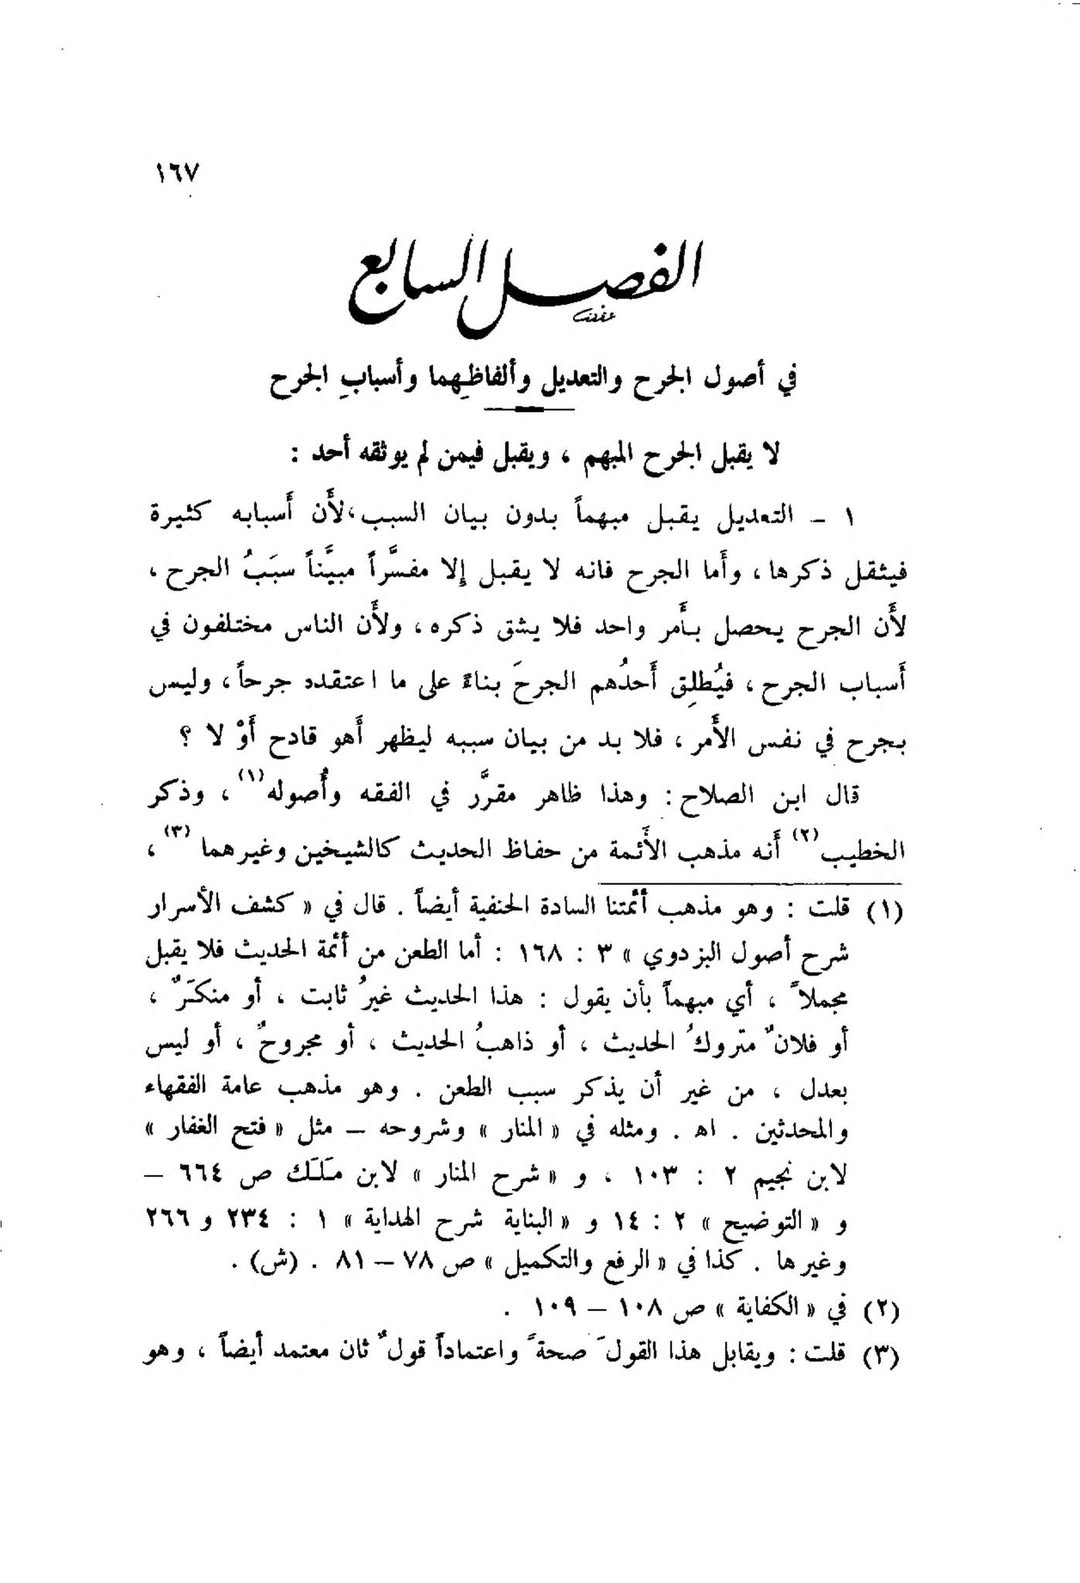 ١٦٧
الفصل السابع
في أصول الجرح والتعديل وألفاظِهما وأسبابِ الجرح
لا يقبل الجرح المبهم ، ويقبل فيمن لم يوثقه أحد :
١ – التعديل يقبل مبهماً بدون بيان السبب، لأَن أَسبابه كثيرة
فيثقل ذكرها ، وأَما الجرح فانه لا يقبل إلا مفسَّراً مبيَّناً سبَبُ الجرح ،
لأَن الجرح يحصل بأَمر واحد فلا يشق ذكره ، ولأَن الناس مختلفون في
أَسباب الجرح ، فيُطلِق أَحدُهم الجرحَ بناءً على ما اعتقده جرحاً ، وليس
بجرح في نفس الأَمر ، فلا بد من بيان سببه ليظهر أَهو قادح أَوْ لا ؟
قال ابن الصلاح : وهذا ظاهر مقرَّر في الفقه وأُصوله (١) ، وذكر
الخطيب (٢) أَنه مذهب الأَئمة من حفاظ الحديث كالشيخين وغيرهما (٣) ،
(١) قلت : وهو مذهب أئمتنا السادة الحنفية أيضاً . قال في « كشف الأسرار
شرح أصول البزدوي » ٣ : ١٦٨ : أما الطعن من أئمة الحديث فلا يقبل
مجملاً ، أي مبهماً بأن يقول : هذا الحديث غيرُ ثابت ، أو منكَرٌ ،
أو فلانٌ متروكُ الحديث ، أو ذاهبُ الحديث ، أو مجروحٌ ، أو ليس
بعدل ، من غير أن يذكر سبب الطعن . وهو مذهب عامة الفقهاء
والمحدثين . اه . ومثله في « المنار » وشروحه – مثل « فتح الغفار »
لابن نجيم ٢ : ١٠٣ ، و « شرح المنار » لابن مَلَك ص ٦٦٤ –
و « التوضيح » ٢ : ١٤ و « البناية شرح الهداية » ١ : ٢٣٤ و ٢٦٦
وغيرها . كذا في « الرفع والتكميل » ص ٧٨ – ٨١ . (ش) .
(٢) في « الكفاية » ص ١٠٨ – ١٠٩ .
(٣) قلت : ويقابل هذا القولَ صحةً واعتماداً قولٌ ثان معتمد أيضاً ، وهو